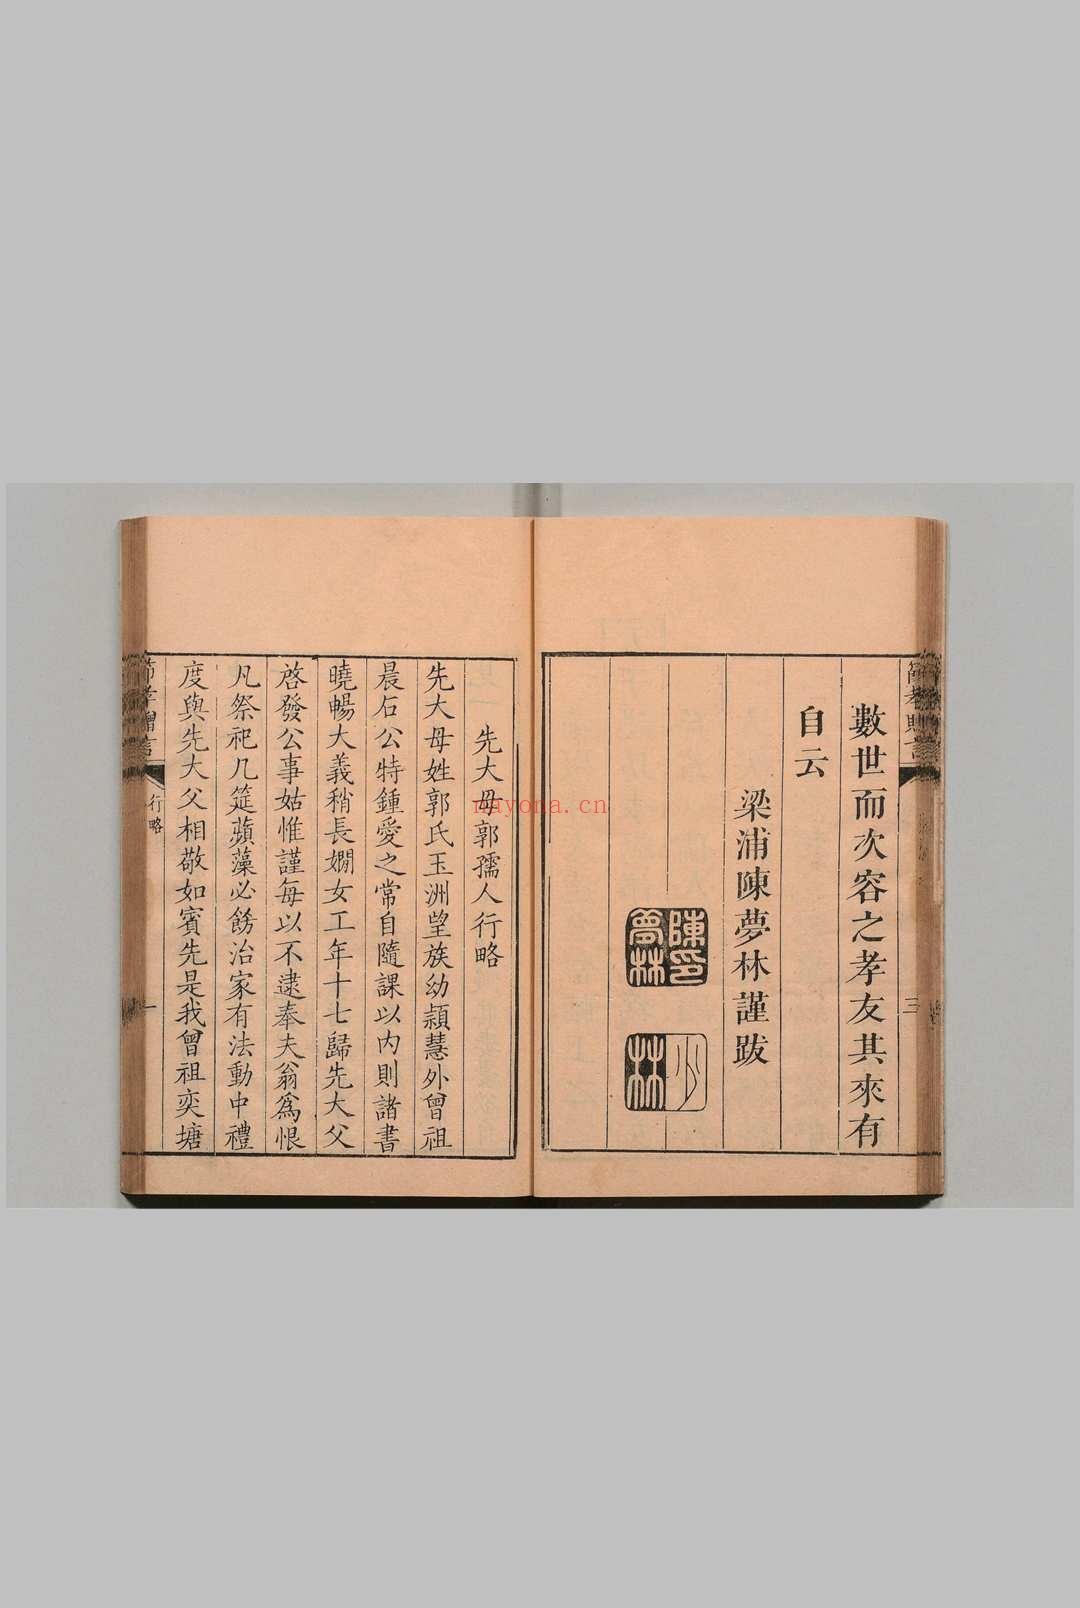 數世而次容之孝友其來有
自云
梁浦陳夢林謹跋
陳印
夢林
少
林
三
先大母郭孺人行略
先大母姓郭氏玉洲望族幼穎慧外曾祖
晨石公特鍾愛之常自隨課以內則諸書
曉暢大義稍長嫺女工年十七歸先大父
啓發公事姑惟謹每以不逮奉夫翁爲恨
凡祭祀几筵蘋藻必餝治家有法動中禮
度與先大父相敬如賓先是我曾祖奕塘
節孝贈言
行略
一
nayona.cn